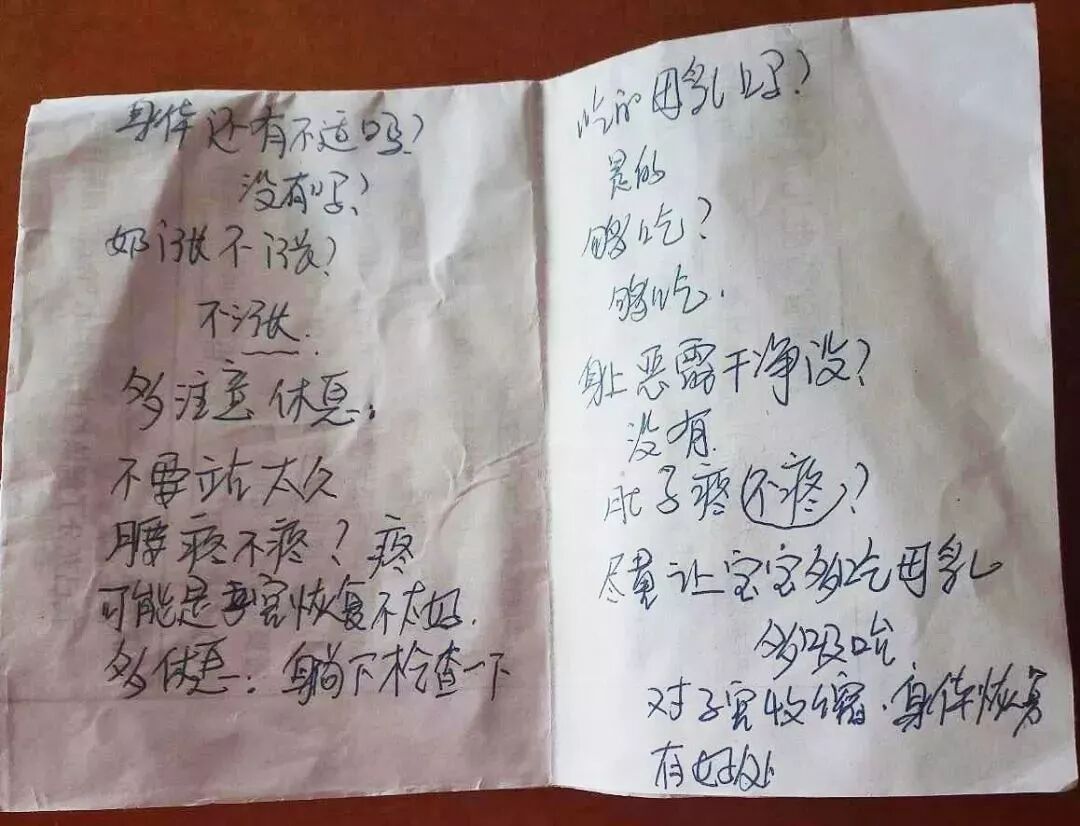 身体还有不适吗？
没有吗？
奶涨不涨？
不涨.
多注意休息：
不要站太久
腰疼不疼？疼
可能是子宫恢复不太好.
多休息：躺下检查一下
吃的母乳吗？
是的
够吃？
够吃.
身上恶露干净没？
没有
肚子疼不疼？
尽量让宝宝多吃母乳
多吸吮，
对子宫收缩.身体恢复
有好处